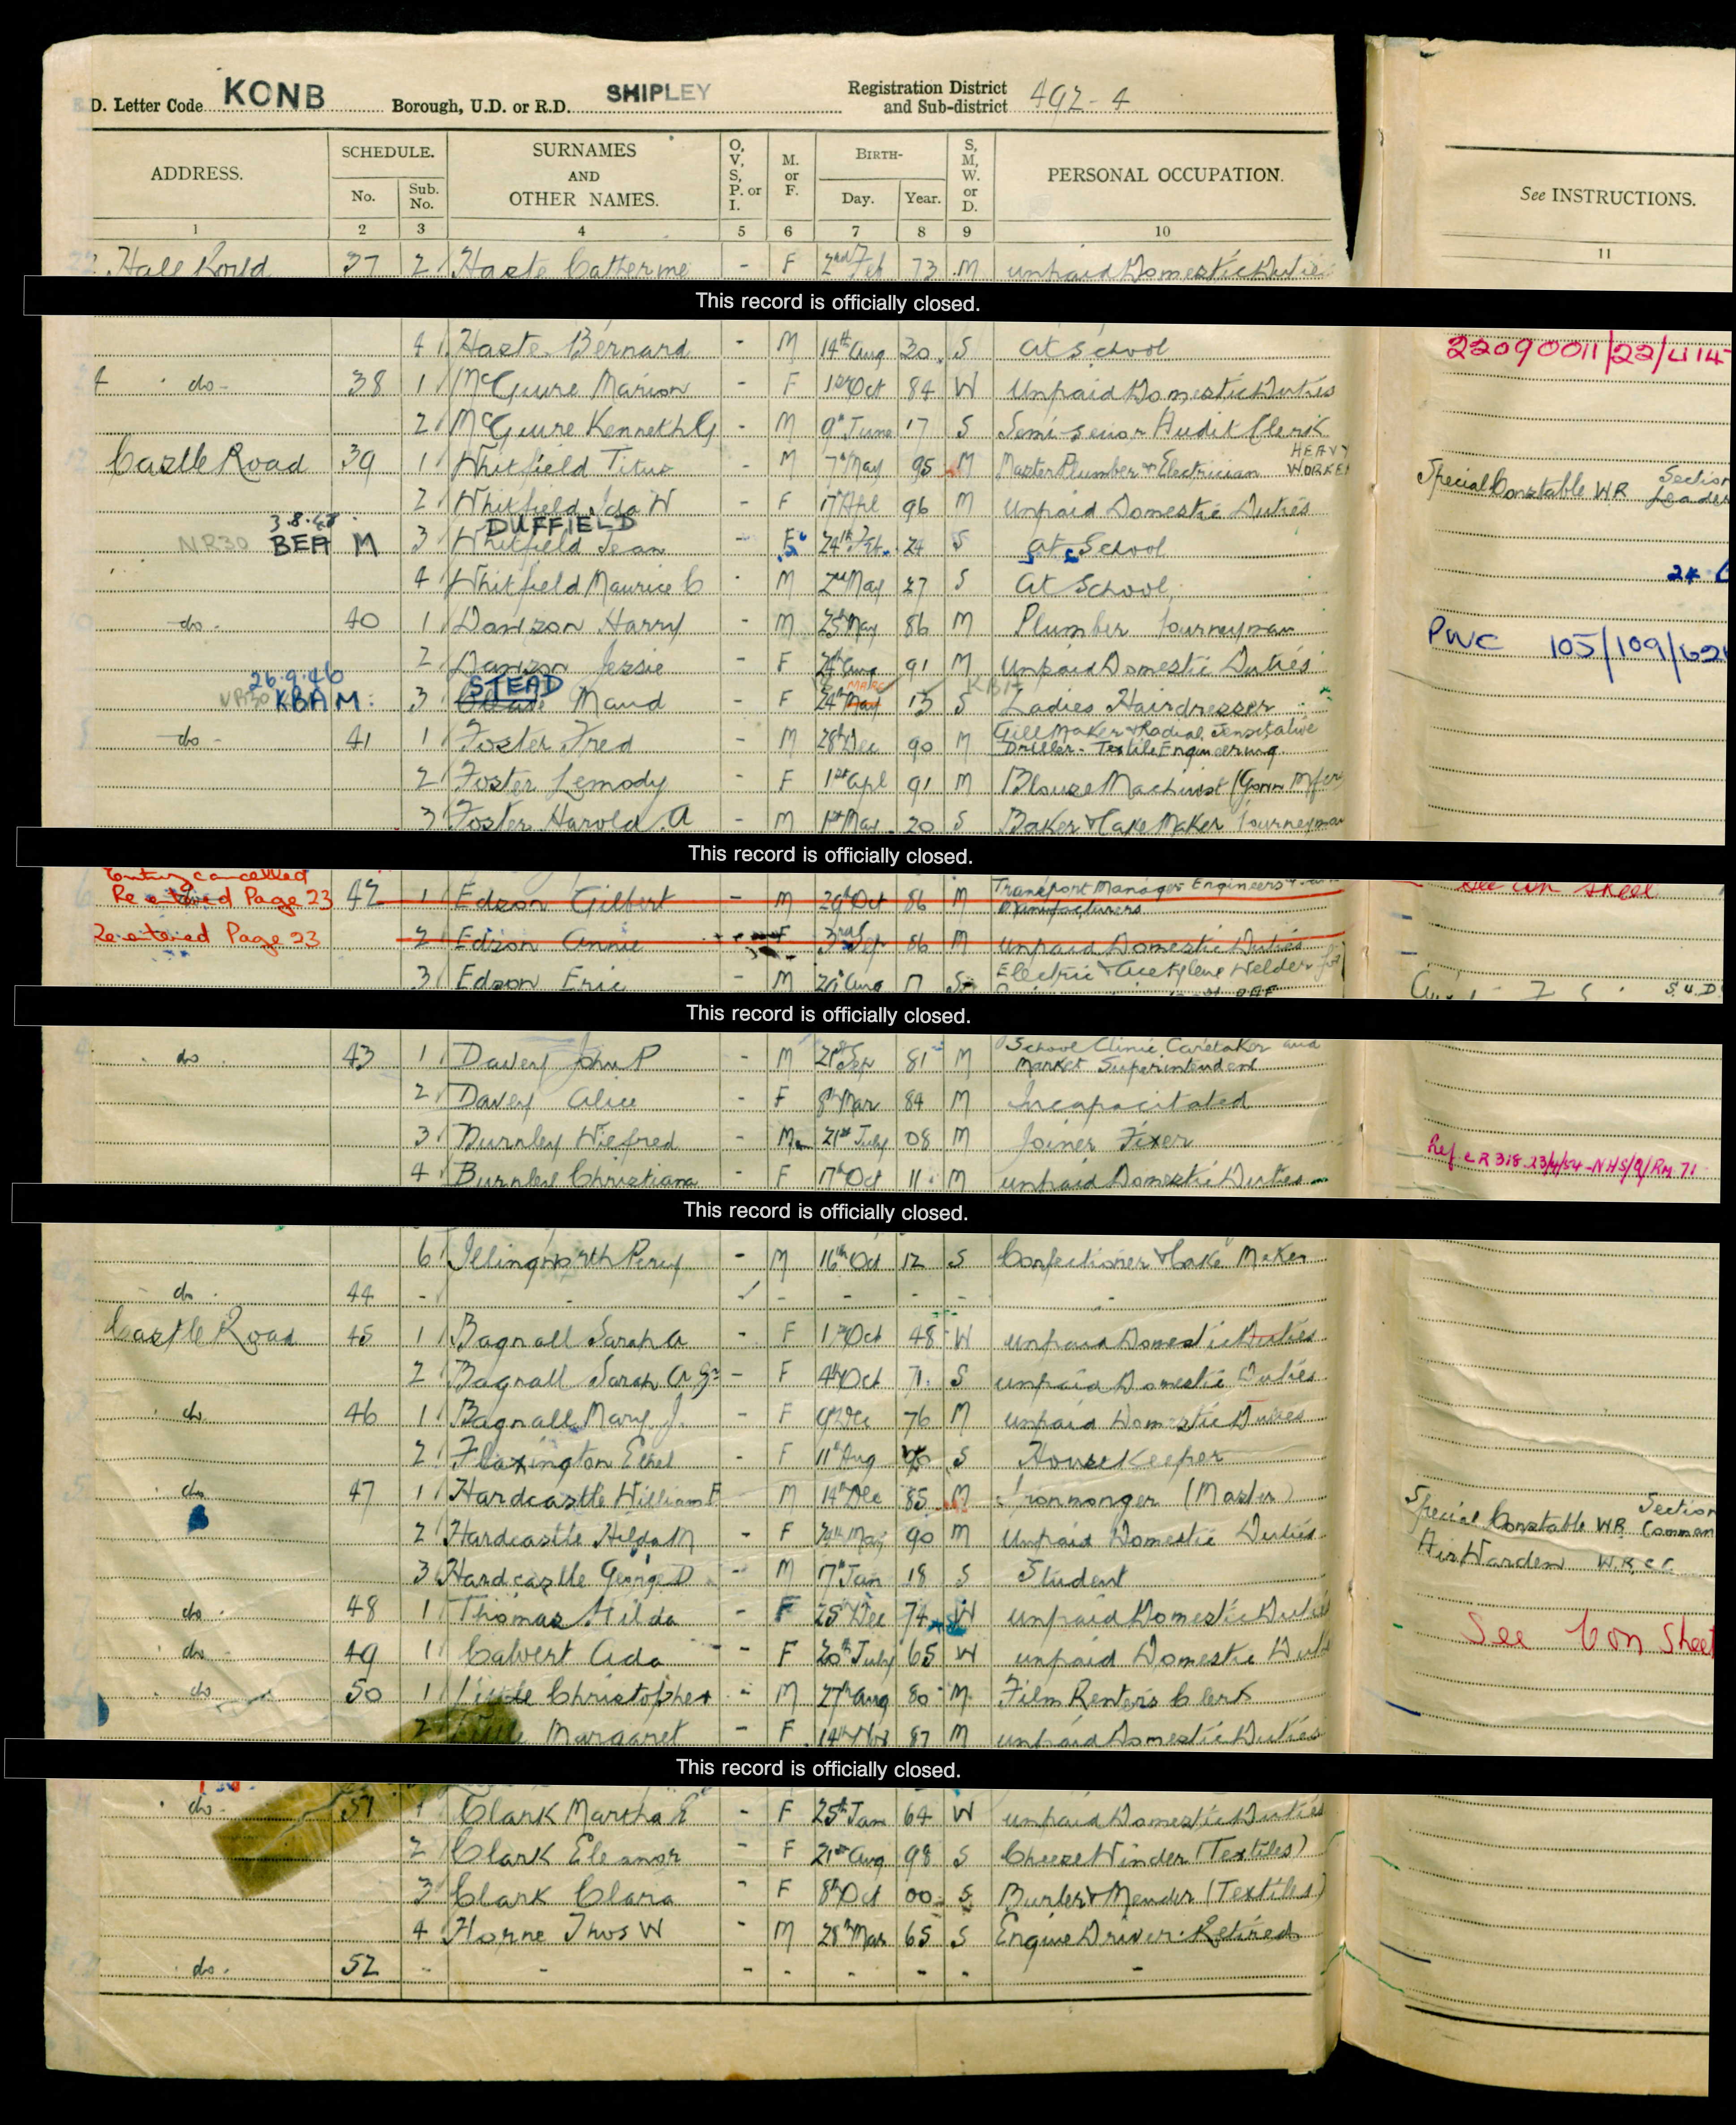 D. Letter Code KONB Borough, U.D. or R.D. SHIPLEY Registration District and Sub-district 492-4
ADDRESS. SCHEDULE. No. Sub. No. SURNAMES AND OTHER NAMES. O, V, S, P. or I. M. or F. BIRTH- Day. Year. S, M, W. or D. PERSONAL OCCUPATION. See INSTRUCTIONS.
1 2 3 4 5 6 7 8 9 10 11
Hall Road 37 2 Haste Catherine - F 2nd Feb 73 M unpaid Domestic Duties
This record is officially closed.
4 Haste Bernard - M 14th Aug 30 S at School 22090011/22/414
do - 38 1 McGuire Marion - F 1st Oct 84 W Unpaid Domestic Duties
2 McGuire Kenneth G - M 9th June 17 S Semi-senior Audit Clerk
Castle Road 39 1 Whitfield Titus - M 7th May 95 M Master Plumber & Electrician HEAVY WORKER Special Constable WR Section Leader
2 Whitfield Ida W - F 17 Apl 96 M Unpaid Domestic Duties
3.8.48 DUFFIELD
NR30 BEA M 3 Whitfield Jean F 24th Feb. 24 S at School
4 Whitfield Maurice C - M 2nd May 27 S at School 24
do - 40 1 Dawson Harry - M 25th May 86 M Plumber Journeyman PWC 105/109/
2 Dawson Jessie - F 24th Aug 91 M Unpaid Domestic Duties
26.9.46 STEAD
VR30 KBA M: 3 Maud - F 24th May 13 S Ladies Hairdresser
do - 41 1 Foster Fred - M 28th Dec 90 M Gill Maker & Radial Driller - Textile Engineering
2 Foster Lemody - F 1st Apl 91 M Blouse Machinist (Gown Mfer
3 Foster Harold A - M 1st May 20 S Baker & Cake Maker Journeyman
This record is officially closed.
Entry cancelled
Re entered Page 23 42 1 Edson Gilbert - M 29th Oct 86 M Transport Manager Engineers Manufacturers
Re entered Page 23 2 Edson Annie F 3rd Sep 86 M unpaid Domestic Duties
3 Edson Eric - M Aug 17 S Electric & Acetylene Welder
This record is officially closed.
do - 43 1 Davey John P - M 21st Sep 81 M School Clinic Caretaker and Market Superintendent
2 Davey Alice - F 8th Mar 84 M Incapacitated
3 Burnley Wilfred - M 21st July 08 M Joiner Fixer
4 Burnley Christiana - F 17th Oct 11 M unpaid Domestic Duties Ref CR318 23/4/54-NHS/9/RM 71
This record is officially closed.
6 Illingworth Percy - M 16th Oct 12 S Confectioner & Cake Maker
do - 44 - - - - - - -
Castle Road 45 1 Bagnall Sarah A - F 1st Oct 48 W unpaid Domestic Duties
2 Bagnall Sarah A Jr - F 4th Oct 71 S unpaid Domestic Duties
do 46 1 Bagnall Mary J. - F 9th Dec 76 M unpaid Domestic Duties
2 Flaxington Ethel - F 11th Aug S Housekeeper
do 47 1 Hardcastle William F M 14th Dec 85 M Ironmonger (Master) Special Constable WR Section
2 Hardcastle Hilda M - F 29th May 90 M Unpaid Domestic Duties Air Warden
3 Hardcastle George D - M 17 Jan 18 S Student
do 48 1 Thomas Hilda - F 25th Dec 74 W unpaid Domestic Duties
do 49 1 Calvert Ada - F 20th July 65 W unpaid Domestic Duties See on Sheet
do 50 1 Little Christopher - M 27th Aug 80 M Film Renters Clerk
2 Little Margaret - F 14th Nov 87 M unpaid Domestic Duties
This record is officially closed.
do - 51 1 Clark Martha E - F 25th Jan 64 W unpaid Domestic Duties
2 Clark Eleanor - F 21st Aug 98 S Cheese Winder (Textiles)
3 Clark Clara - F 8th Oct 00 S Burler & Mender (Textiles)
4 Horne Thos W - M 28th Mar 65 S Engine Driver Retired
do - 52 - - - - - - - -